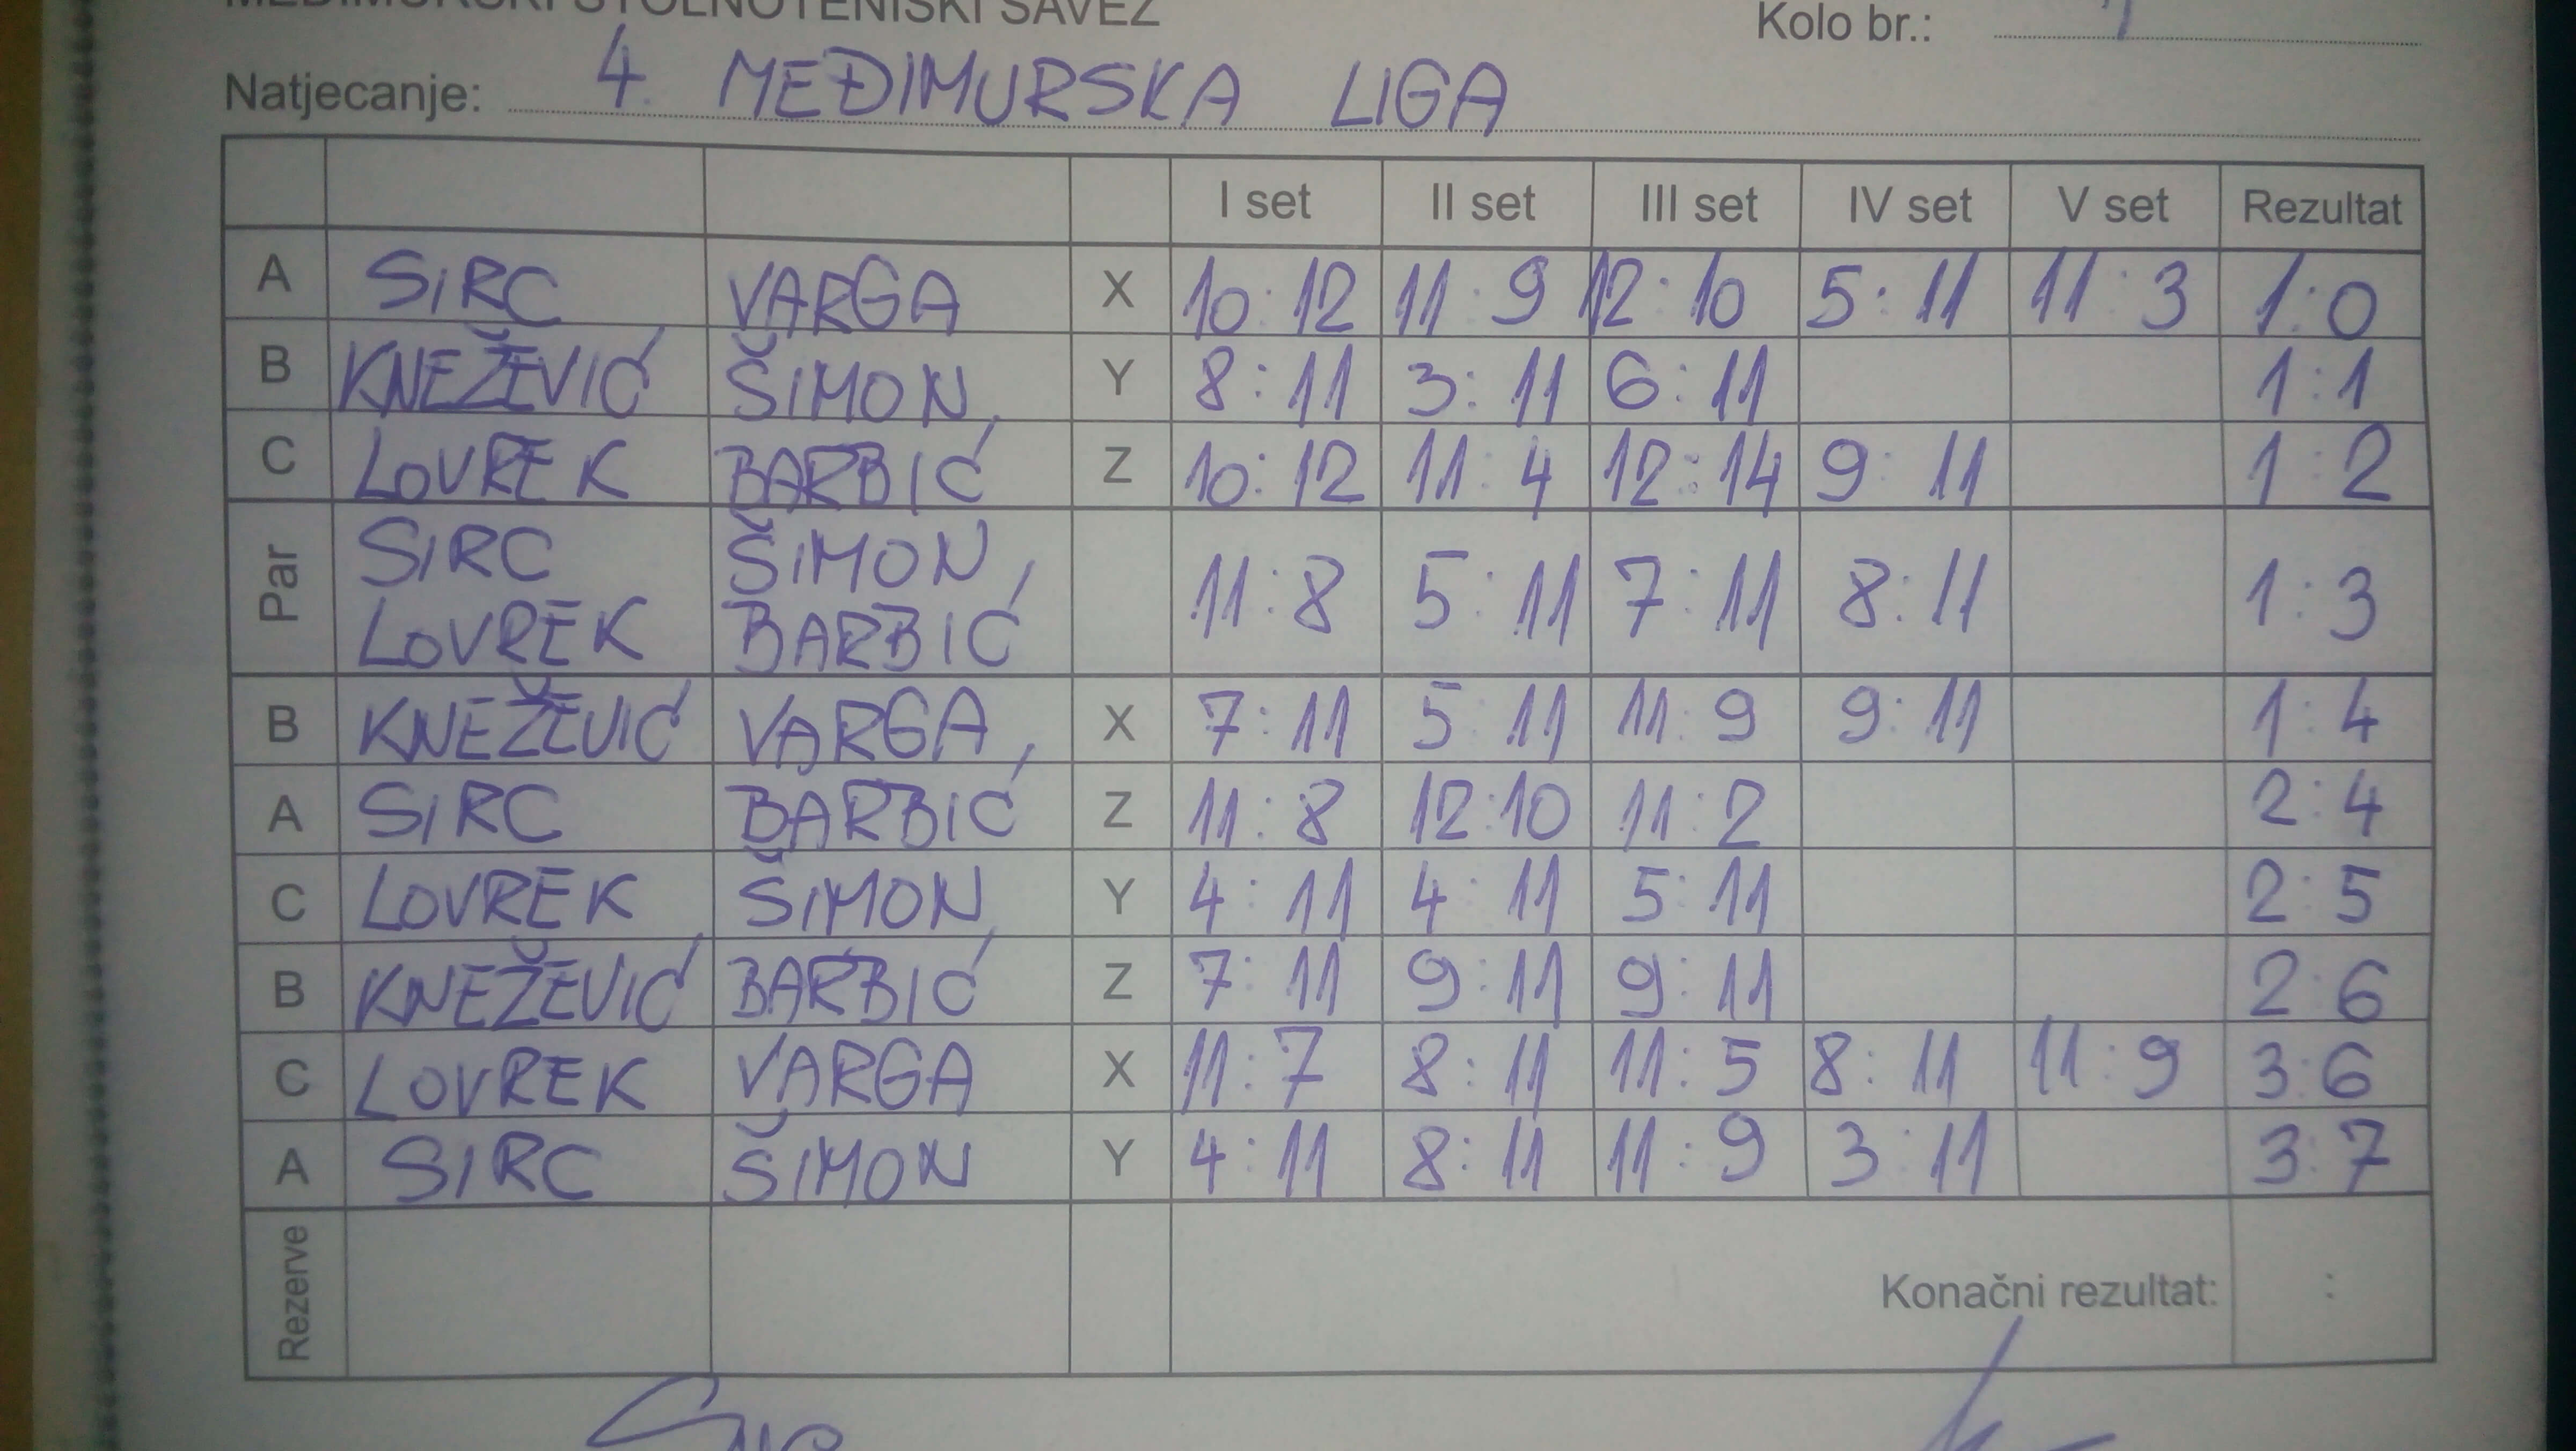 MEĐIMURSKI STOLNOTENISKI SAVEZ
Kolo br.:
Natjecanje: 4. MEĐIMURSKA LIGA
I set II set III set IV set V set Rezultat
A SIRC VARGA X 10:12 11:9 12:10 5:11 11:3 1:0
B KNEŽEVIĆ ŠIMON Y 8:11 3:11 6:11 1:1
C LOVREK BARBIĆ Z 10:12 11:4 12:14 9:11 1:2
Par SIRC ŠIMON 11:8 5:11 7:11 8:11 1:3
LOVREK BARBIĆ
B KNEŽEVIĆ VARGA X 7:11 5:11 11:9 9:11 1:4
A SIRC BARBIĆ Z 11:8 12:10 11:2 2:4
C LOVREK ŠIMON Y 4:11 4:11 5:11 2:5
B KNEŽEVIĆ BARBIĆ Z 7:11 9:11 9:11 2:6
C LOVREK VARGA X 11:7 8:11 11:5 8:11 11:9 3:6
A SIRC ŠIMON Y 4:11 8:11 11:9 3:11 3:7
Rezerve Konačni rezultat: :